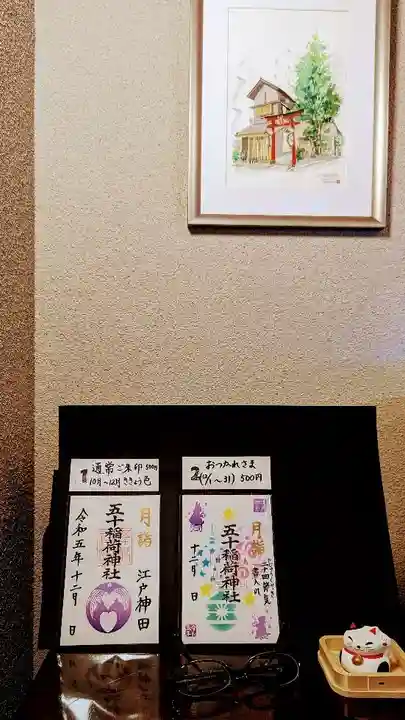 1 通常ご朱印 500円
10月〜12月 ききょう色
月詣
江戸神田
五十稲荷神社
令和五年十二月 日
2 おつかれさま
(12/1〜31) 500円
月詣
二十四節気
書入れ
五十稲荷神社
十二月 日